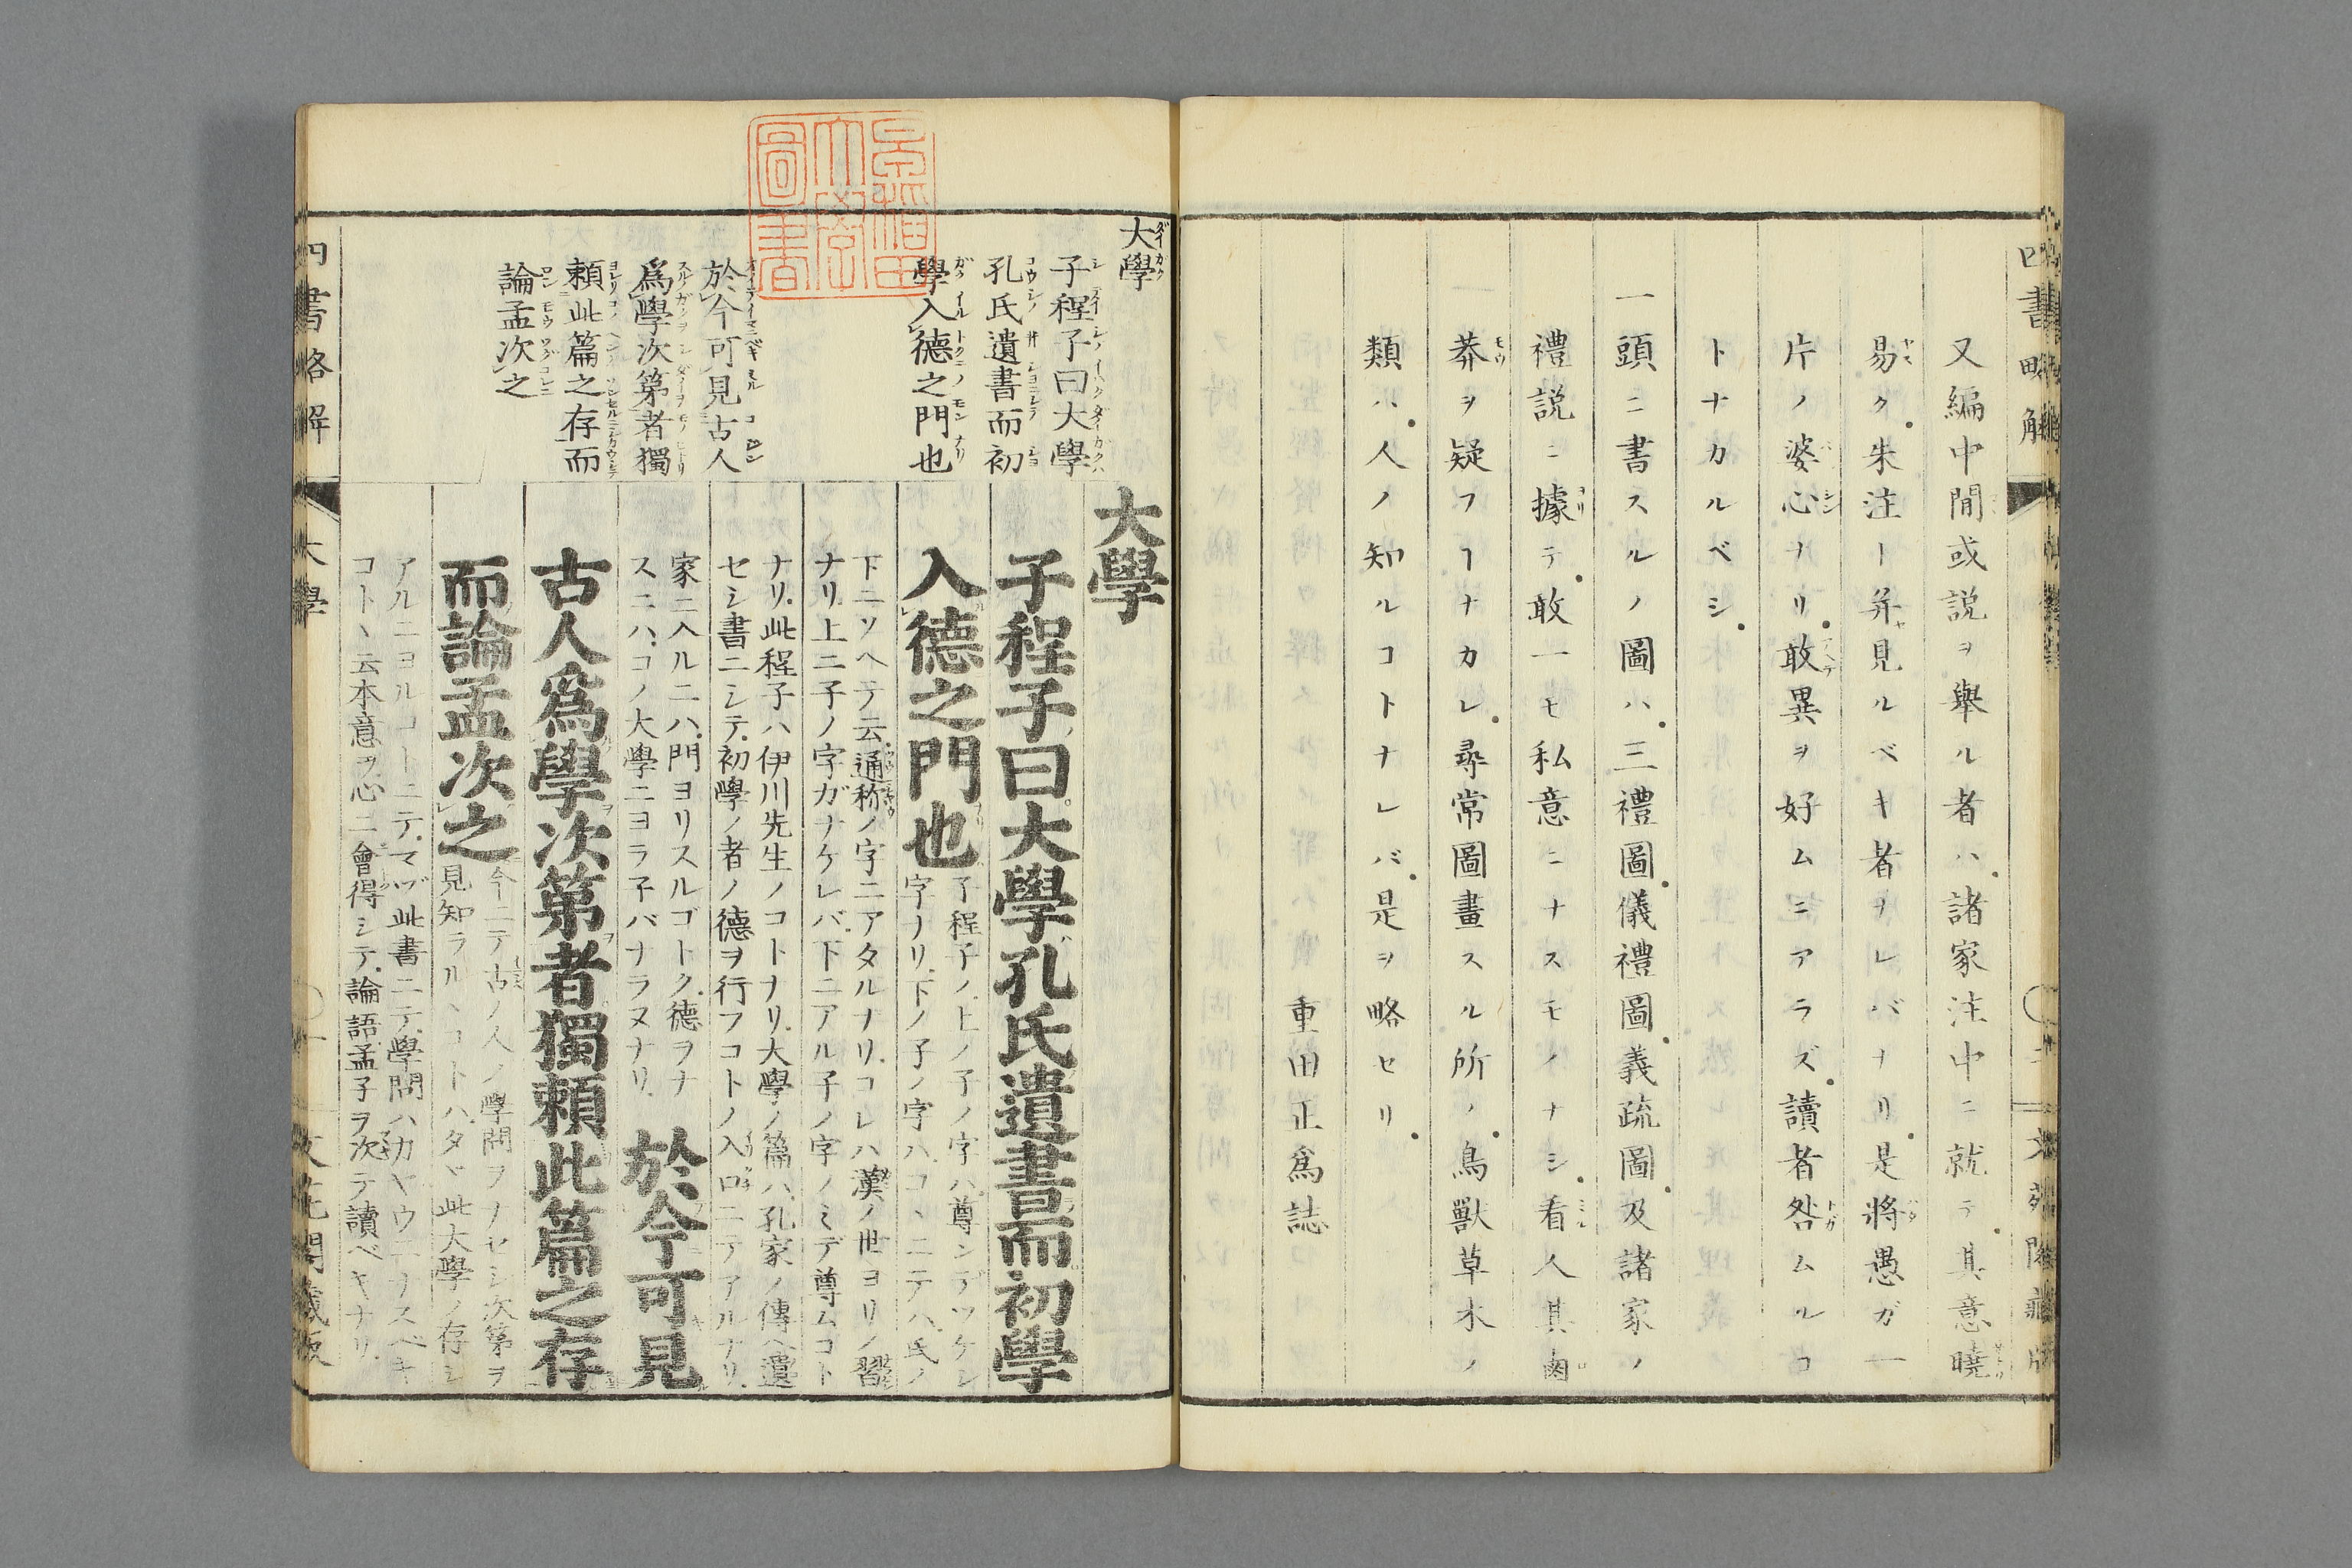 又編中閒或説ヲ舉ル者ハ諸家注中ニ就テ其意曉
易ク朱注ト并見ルベキ者ヲレバナリ是將愚ガ一
片ノ婆心ナリ敢異ヲ好ムニアラズ讀者咎ムルコ
トナカルベシ
一頭ニ書スルノ圖ハ三禮圖儀禮圖義疏圖及諸家ノ
禮説ニ據テ敢一モ私意ニナスモノナシ看人其鹵
莽ヲ疑フ⼀ナカレ尋常圖畫スル所ノ鳥獸草木ノ
類ハ人ノ知ルコトナレバ是ヲ略セリ
重田正爲誌
四書略解
大學
子程子曰大學
孔氏遺書而初
學入德之門也
於今可見古人
爲學次第者獨
賴此篇之存而
論孟次之
大學
子程子曰大學孔氏遺書而初學
入德之門也
子程子ノ上ノ子ノ字ハ尊ンデツケシ
字ナリ下ノ子ノ字ハコヽニテハ氏ノ
下ニソヘテ云通称ノ字ニアタルナリコレハ漢ノ世ヨリノ習
ナリ上ニ子ノ字ガナケレバ下ニアル子ノ字ノミデ尊ムコト
ナリ此程子ハ伊川先生ノコトナリ大學ノ篇ハ孔家ノ傳ヘ遺
セシ書ニシテ初學ノ者ノ德ヲ行フコトノ入口ニテアルナリ
家ニ入ルニハ門ヨリスルゴトク德ヲナ
スニハコノ大學ニヨラ子バナラヌナリ
於今可見
古人爲學次第者獨賴此篇之存
而論孟次之
今ニテ古ノ人ノ學問ヲナセシ次第ヲ
見知ラルヽコトハタヾ此大學ノ存シ
アルニヨルコトニテマヅ此書ニテ學問ハカヤウニナスベキ
コトヽ云本意ヲ心ニ會得シテ論語孟子ヲ次テ讀ベキナリ
四書略解
大學